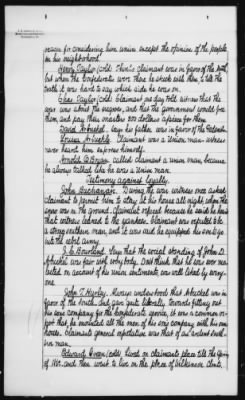 reason for considering him union except the opinion of the people
in his neighborhood.
Henry Taylor (cold) Thinks claimant was in favor of the south,
but when the Confederates were there he stuck with them & told the
truth it was hard to say which side he was on.
Chas Taylor (cold) Claimant one day told witness that the
war was about the negroes, and that the government would free
them, and pay their masters 200 dollars apiece for them.
David Arbuckel. Says his father was in favor of the Federals.
Louisa Arbuckle. Claimant was a Union man - witness
never heard him express himself.
Arnold C. Bryan called claimant a union man, because
he always talked like he was a Union man.
Testimony against loyalty.
John Buchanan. During the war witness once asked
claimant to permit him to stay at his house all night when the
snow was on the ground. Claimant refused because he said he knew
that witness talked to the yankees. Claimant was reputed to be
a strong southern man, and it was said he equipped his son to go
into the rebel army.
S. C. Bourland. Says that the social standing of John D.
Arbuckle was fair with everybody. Dont think that he was ever mo-
lested on account of his union sentiments was well liked by every-
one.
John T. Hurley. Always understood that Arbuckel was in
favor of the South, that gave quite liberally, towards fitting out
his sons company for the confederate service, it was a common re-
port that he mounted all the men of his sons company with his own
horses. Claimants general reputation was that of an ardent south-
ern man.
Edward (cold) lived on claimants place till the Spring
of 1862, and then went to live on the place of Wilkinson,